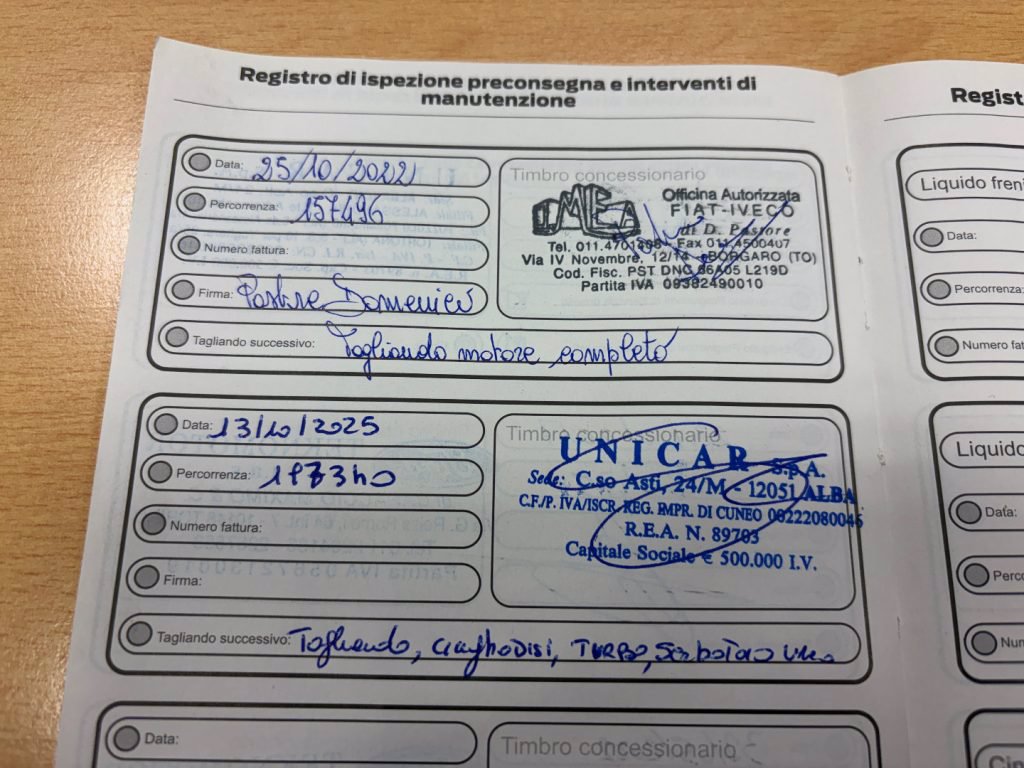 Registro di ispezione preconsegna e interventi di
manutenzione
Data: 25/10/2022
Percorrenza: 157496
Numero fattura:
Firma: Pastore Domenico
Tagliando successivo: Tagliando motore completo
Timbro concessionario
IMEA
Officina Autorizzata
FIAT-IVECO
di D. Pastore
Tel. 011.4701498 - Fax 011.4500407
Via IV Novembre, 12/14 - BORGARO (TO)
Cod. Fisc. PST DNC 66A05 L219D
Partita IVA 09382490010
Data: 13/10/2025
Percorrenza: 197340
Numero fattura:
Firma:
Tagliando successivo: Tagliando, TURBO, serbatoio
Timbro concessionario
UNICAR S.p.A.
Sede: C.so Asti, 24/M - 12051 ALBA
C.F./P. IVA/ISCR. REG. IMPR. DI CUNEO 00222080046
R.E.A. N. 89703
Capitale Sociale € 500.000 I.V.
Data:
Timbro concessionario
Regist
Liquido freni
Data:
Percorrenza:
Numero fat
Liquido
Data:
Perco
Num